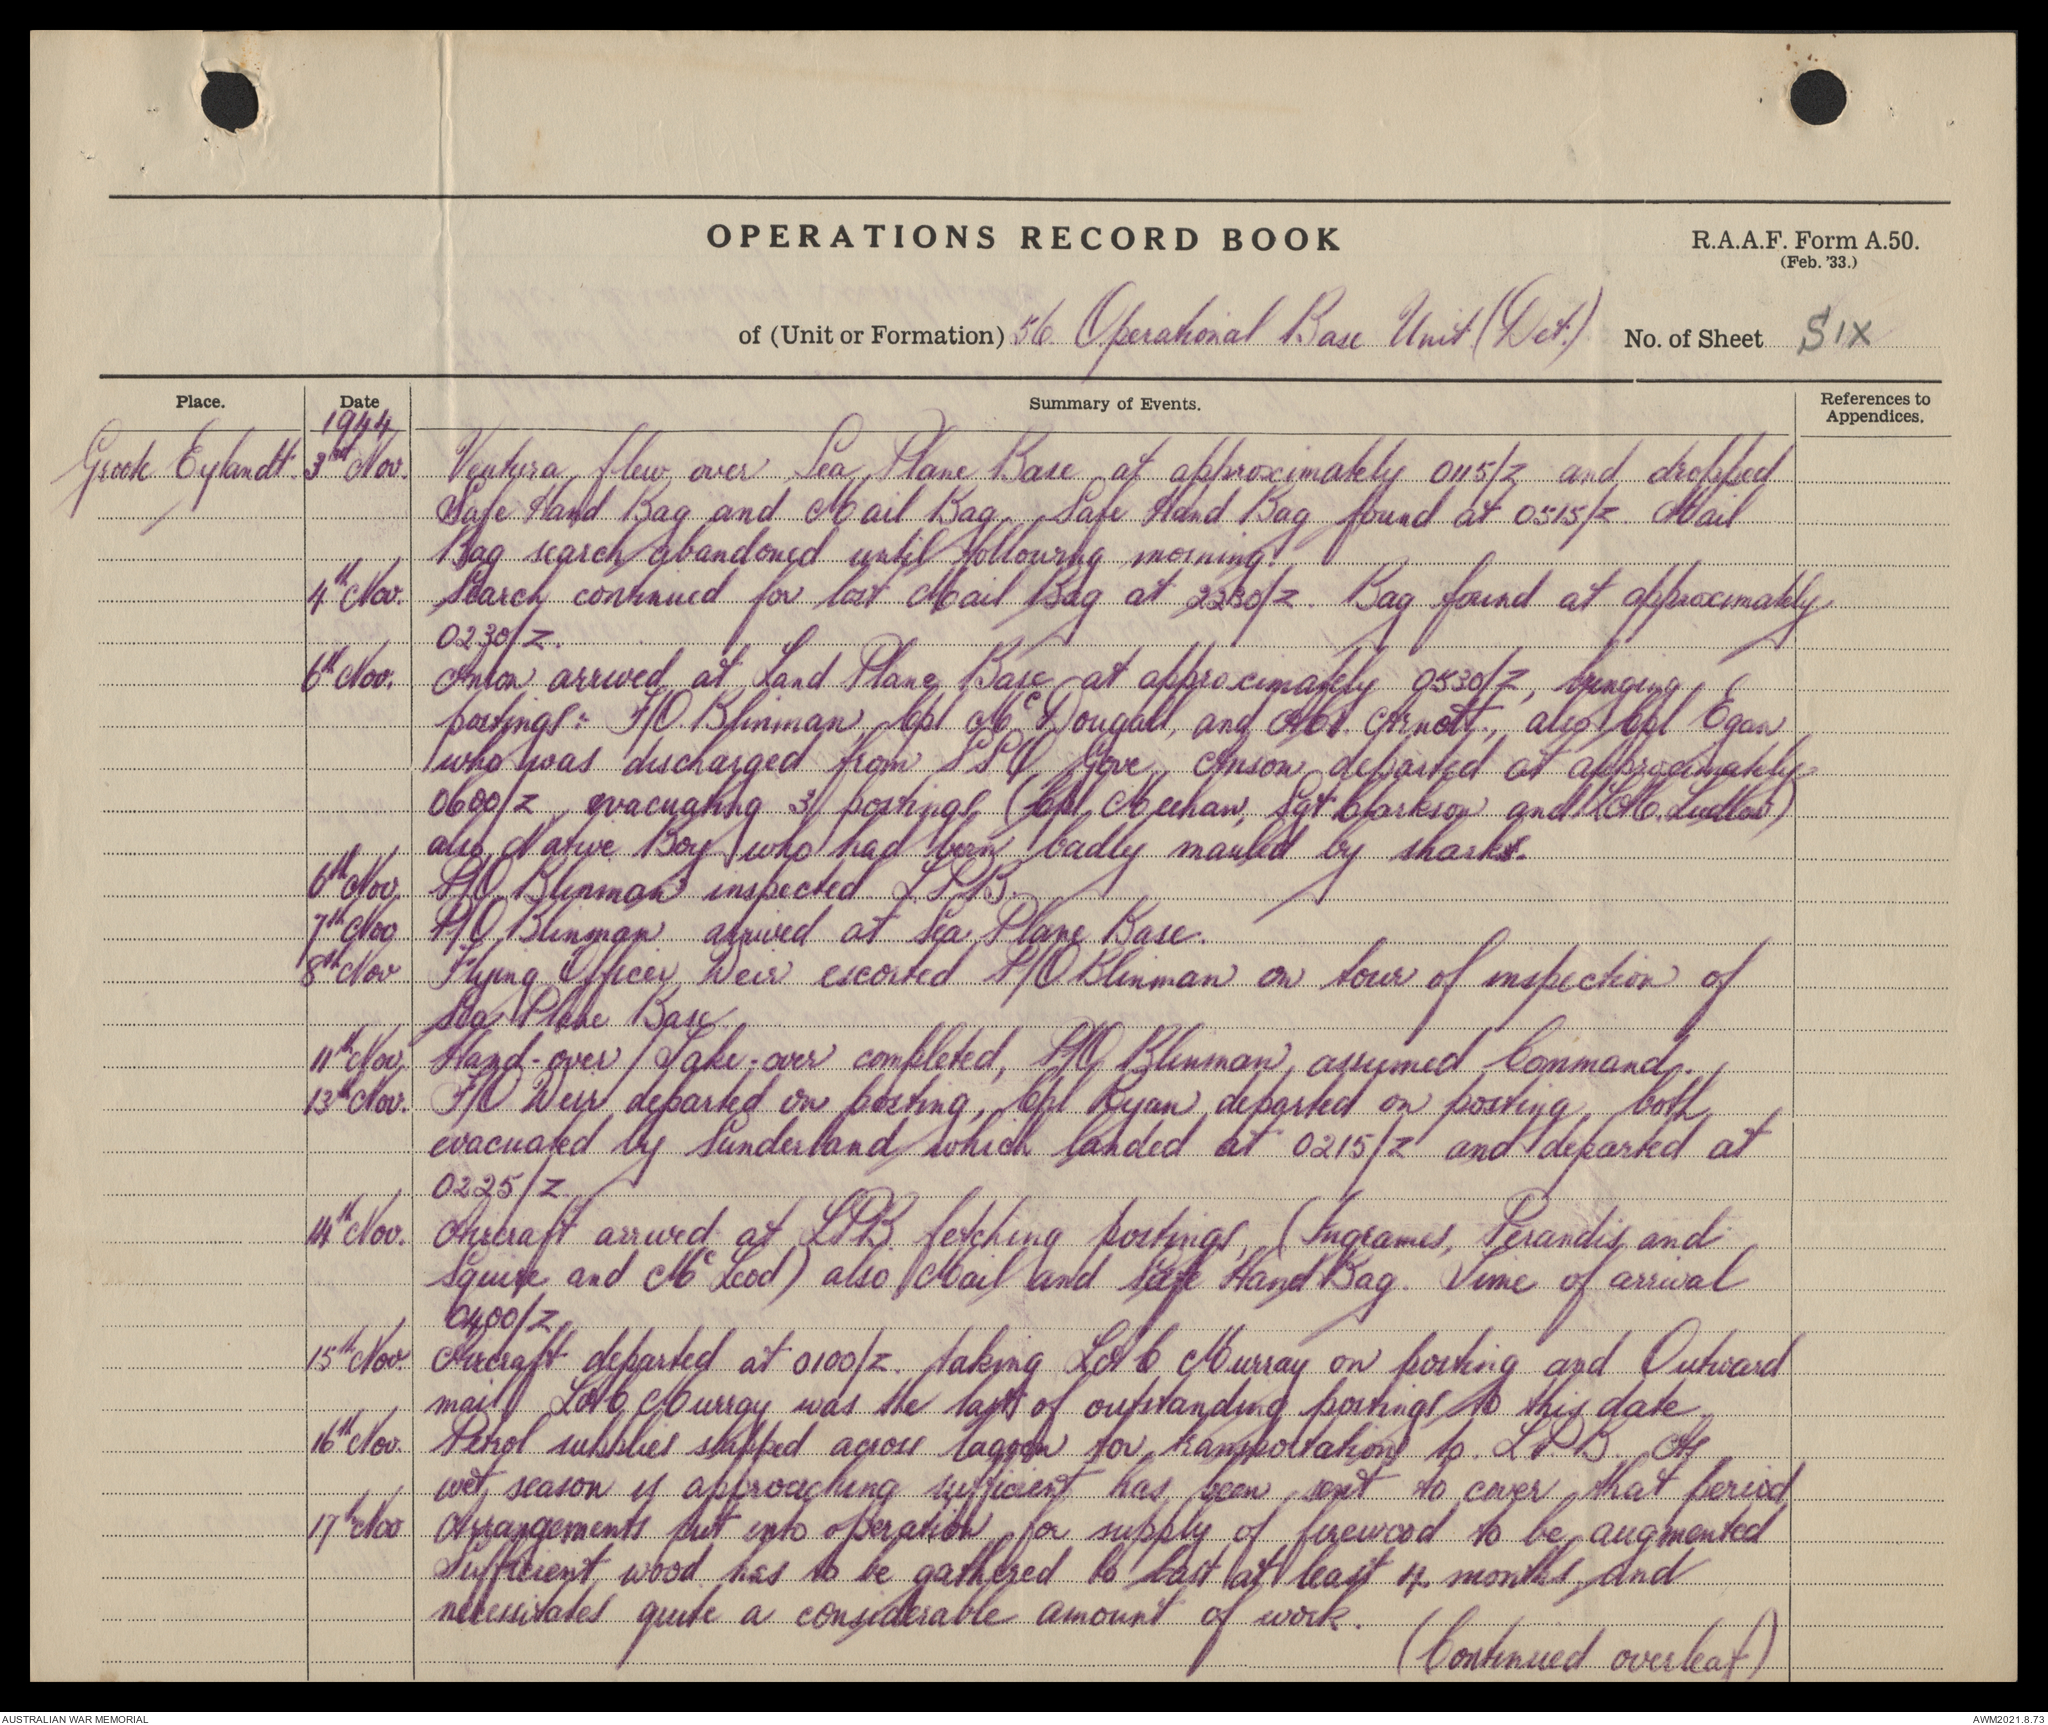 OPERATIONS RECORD BOOK
R.A.A.F. Form A.50.
(Feb. '33.)
of (Unit or Formation) 56 Operational Base Unit (Det.) No. of Sheet SIX
Place. Date Summary of Events. References to Appendices.
1944
Groote Eylandt. 3rd Nov. Ventura flew over Sea Plane Base at approximately 0115/Z and dropped
Safe Hand Bag and Mail Bag. Safe Hand Bag found at 0515/Z Mail
Bag search abandoned until following morning.
4th Nov. Search continued for lost Mail Bag at 2230/Z. Bag found at approximately
0230/Z.
6th Nov. Anson arrived at Land Plane Base at approximately 0530/Z, bringing
postings:- F/O Blinman Cpl McDougall, and Arnott, also Cpl Egan
who was discharged from SSQ Gove, Anson departed at approximately
0600/Z evacuating 3 postings (Cpl Meehan, Sgt Clarkson and Ludlow)
also Native Boy who had been badly mauled by shark.
6th Nov P/O Blinman inspected L.P.B.
7th Nov P/O Blinman arrived at Sea Plane Base.
8th Nov Flying Officer Weir escorted P/O Blinman on tour of inspection of
Sea Plane Base
11th Nov. Hand-over / Take-over completed, P/O Blinman assumed Command.
13th Nov. F/O Weir departed on posting, Cpl Ryan departed on posting, both
evacuated by Sunderland which landed at 0215/Z and departed at
0225/Z
14th Nov. Aircraft arrived at LPB fetching postings, (Ingrames, Perandis and
Squire and McLeod) also Mail and Safe Hand Bag. Time of arrival
0400/Z
15th Nov. Aircraft departed at 0100/Z. taking LAC Murray on posting and Outward
mail LAC Murray was the last of outstanding postings to this date
16th Nov. Petrol supplies shipped across lagoon for transportation to L.P.B. As
wet season is approaching sufficient has been sent to cover that period
17th Nov Arrangements put into operation for supply of firewood to be augmented
Sufficient wood has to be gathered to last at least 4 months and
necessitates quite a considerable amount of work.
(Continued overleaf)
AUSTRALIAN WAR MEMORIAL
AWM2021.8.73